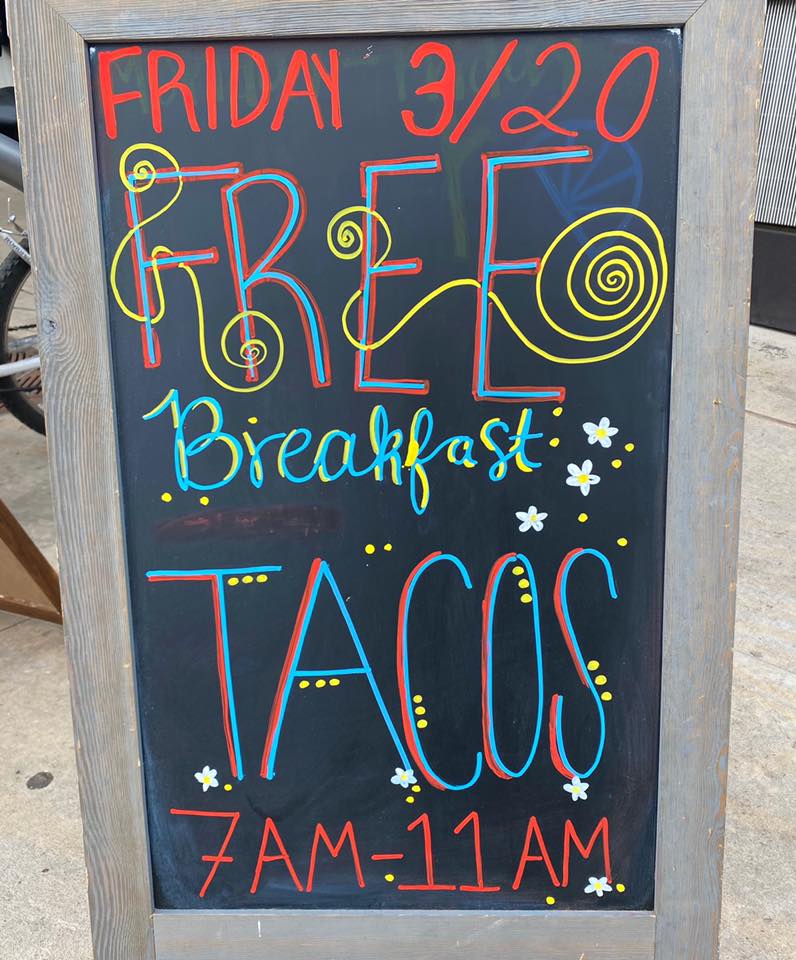 FRIDAY 3/20
FREE
Breakfast
TACOS
7AM-11AM